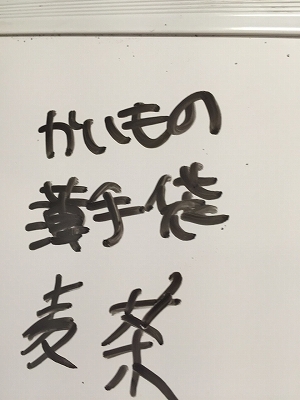 かいもの
軍手袋
麦茶